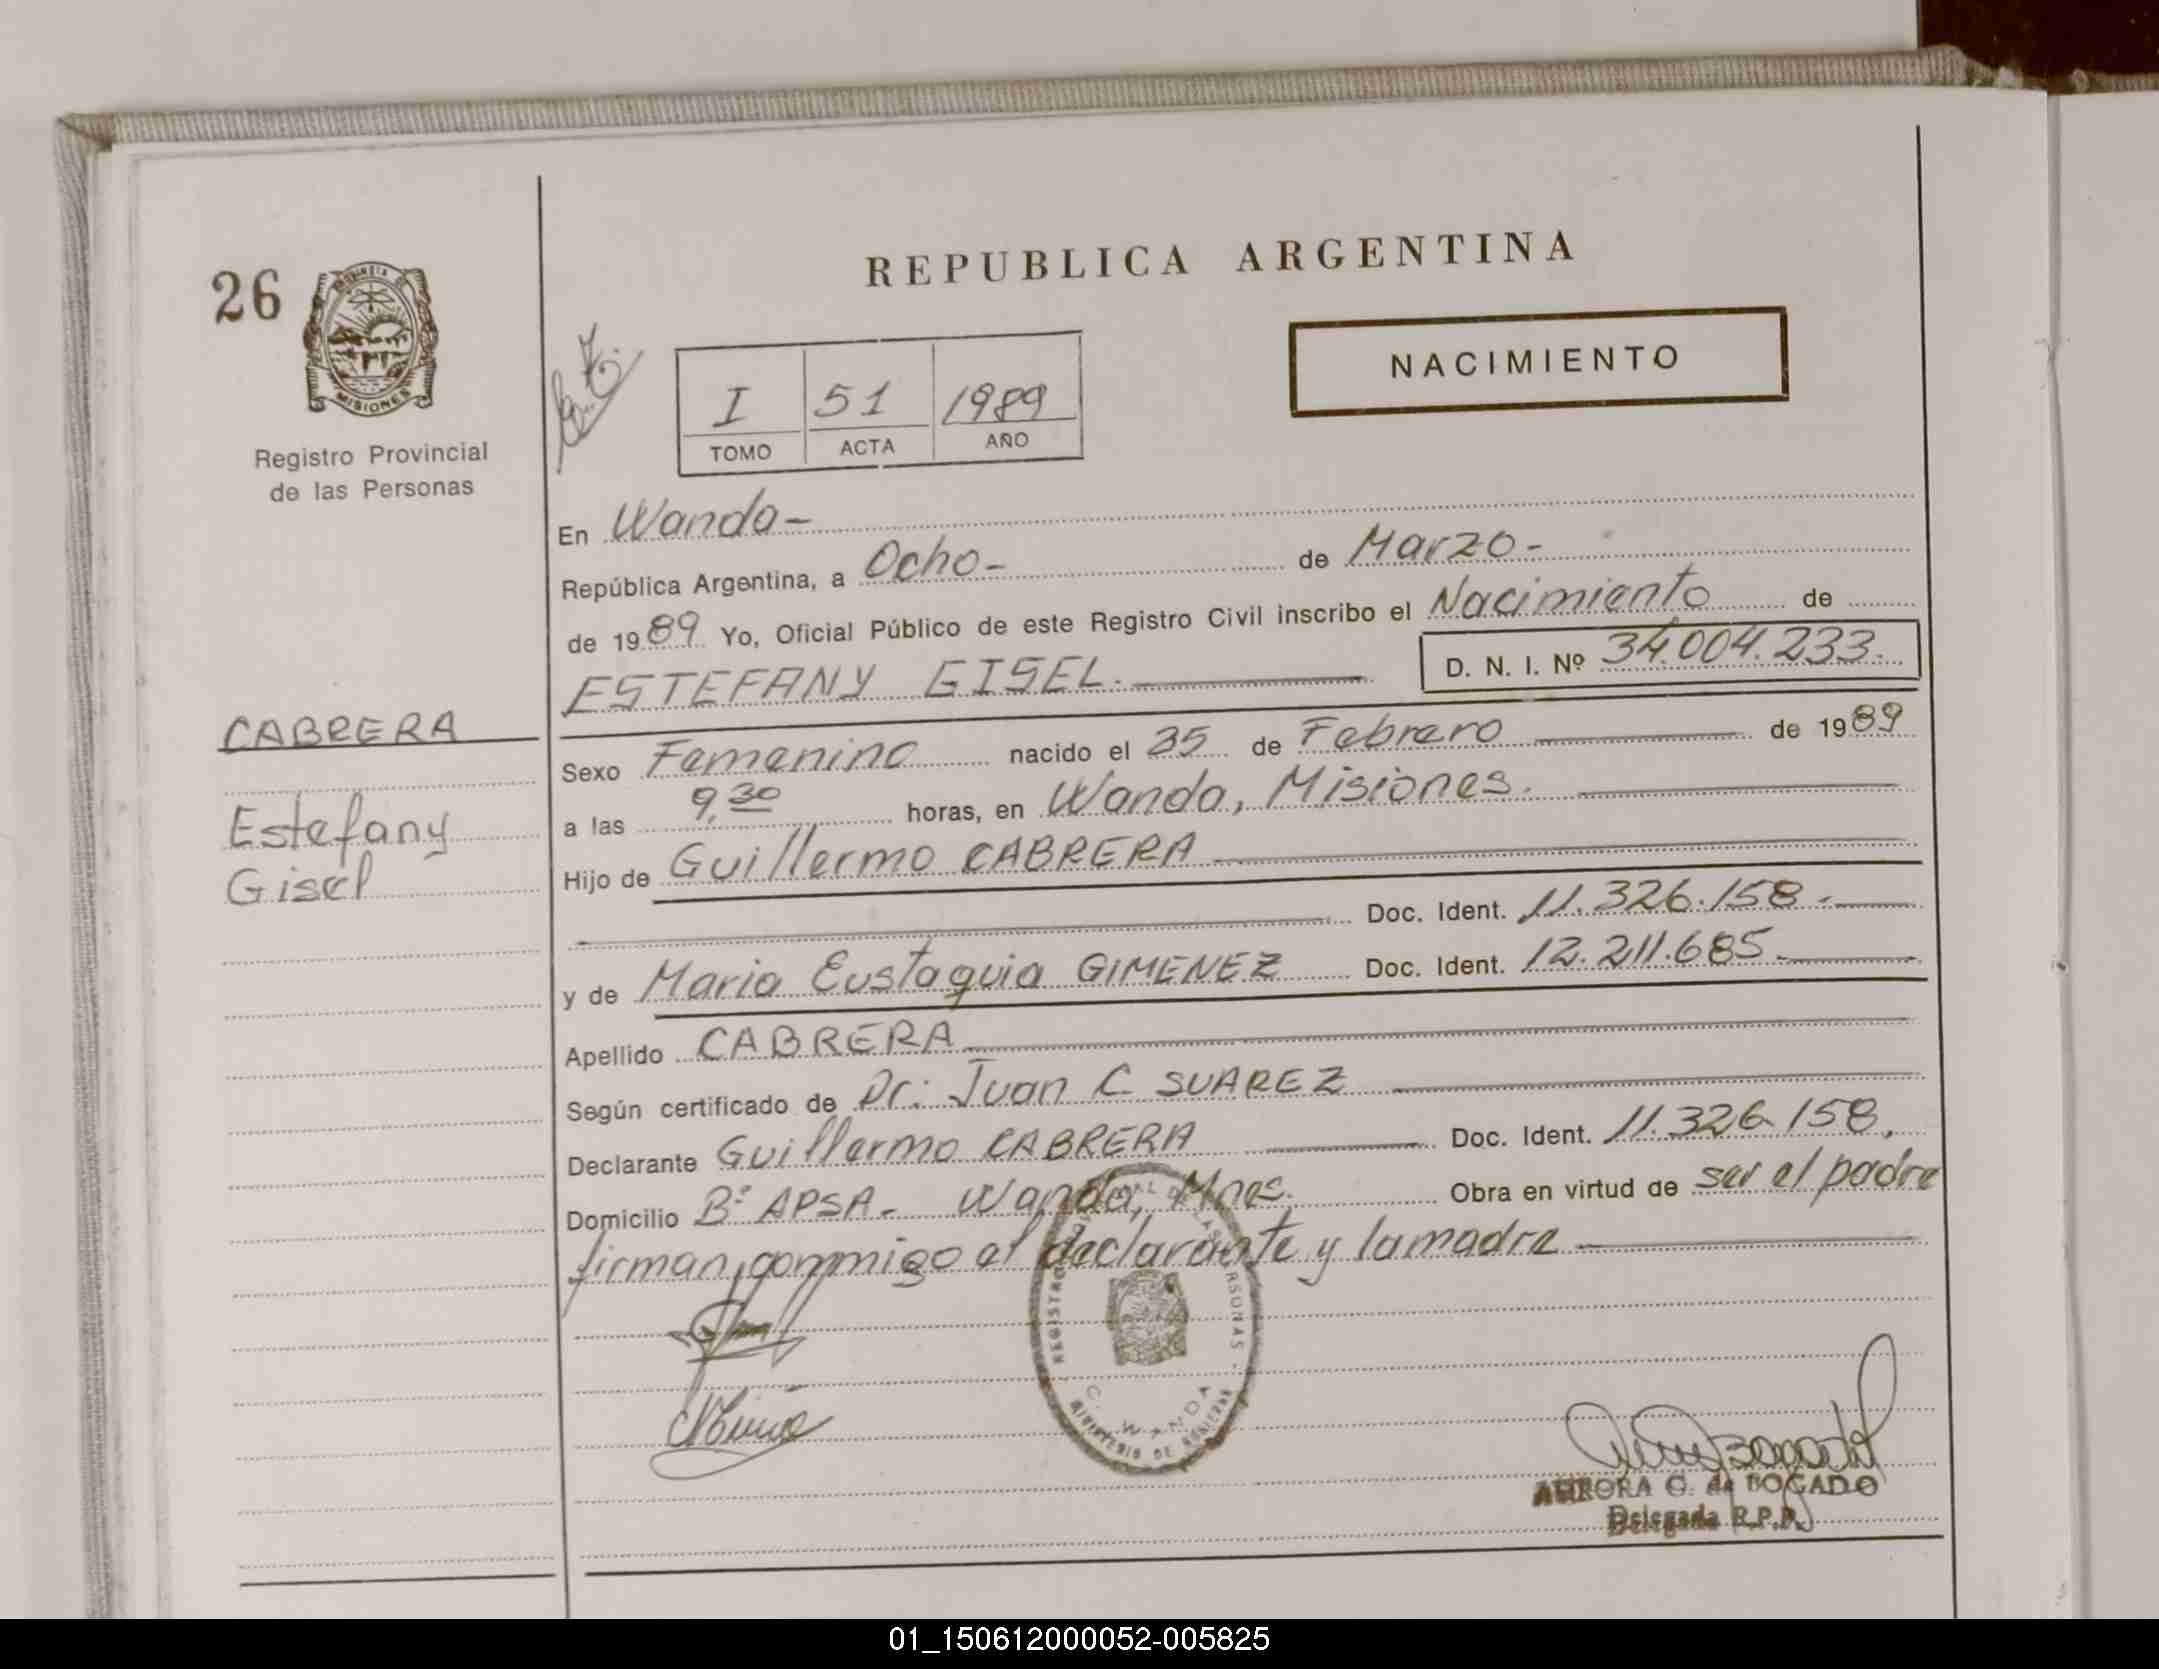 26
PROVINCIA DE
MISIONES
Registro Provincial
de las Personas
REPUBLICA ARGENTINA
NACIMIENTO
I 51 1989
TOMO ACTA AÑO
En Wanda-
República Argentina, a Ocho- de Marzo-
de 1989 Yo, Oficial Público de este Registro Civil inscribo el Nacimiento de
ESTEFANY GISEL. D. N. I. Nº 34.004.233.
CABRERA
Estefany
Gisel
Sexo Femenino nacido el 25 de Febrero de 1989
a las 9,30 horas, en Wanda, Misiones.
Hijo de Guillermo CABRERA
Doc. Ident. 11.326.158.
y de Maria Eustaquia GIMENEZ Doc. Ident. 12.211.685.
Apellido CABRERA
Según certificado de Dr: Juan C. SUAREZ
Declarante Guillermo CABRERA Doc. Ident. 11.326.158.
Domicilio Bº APSA- Wanda, Mnes. Obra en virtud de ser el padre
firman, conmigo el declarante y la madre
REGISTRO PROVINCIAL DE LAS PERSONAS
WANDA
MINISTERIO DE GOBIERNO
AURORA G. de BOGADO
Delegada R.P.P.
01_150612000052-005825